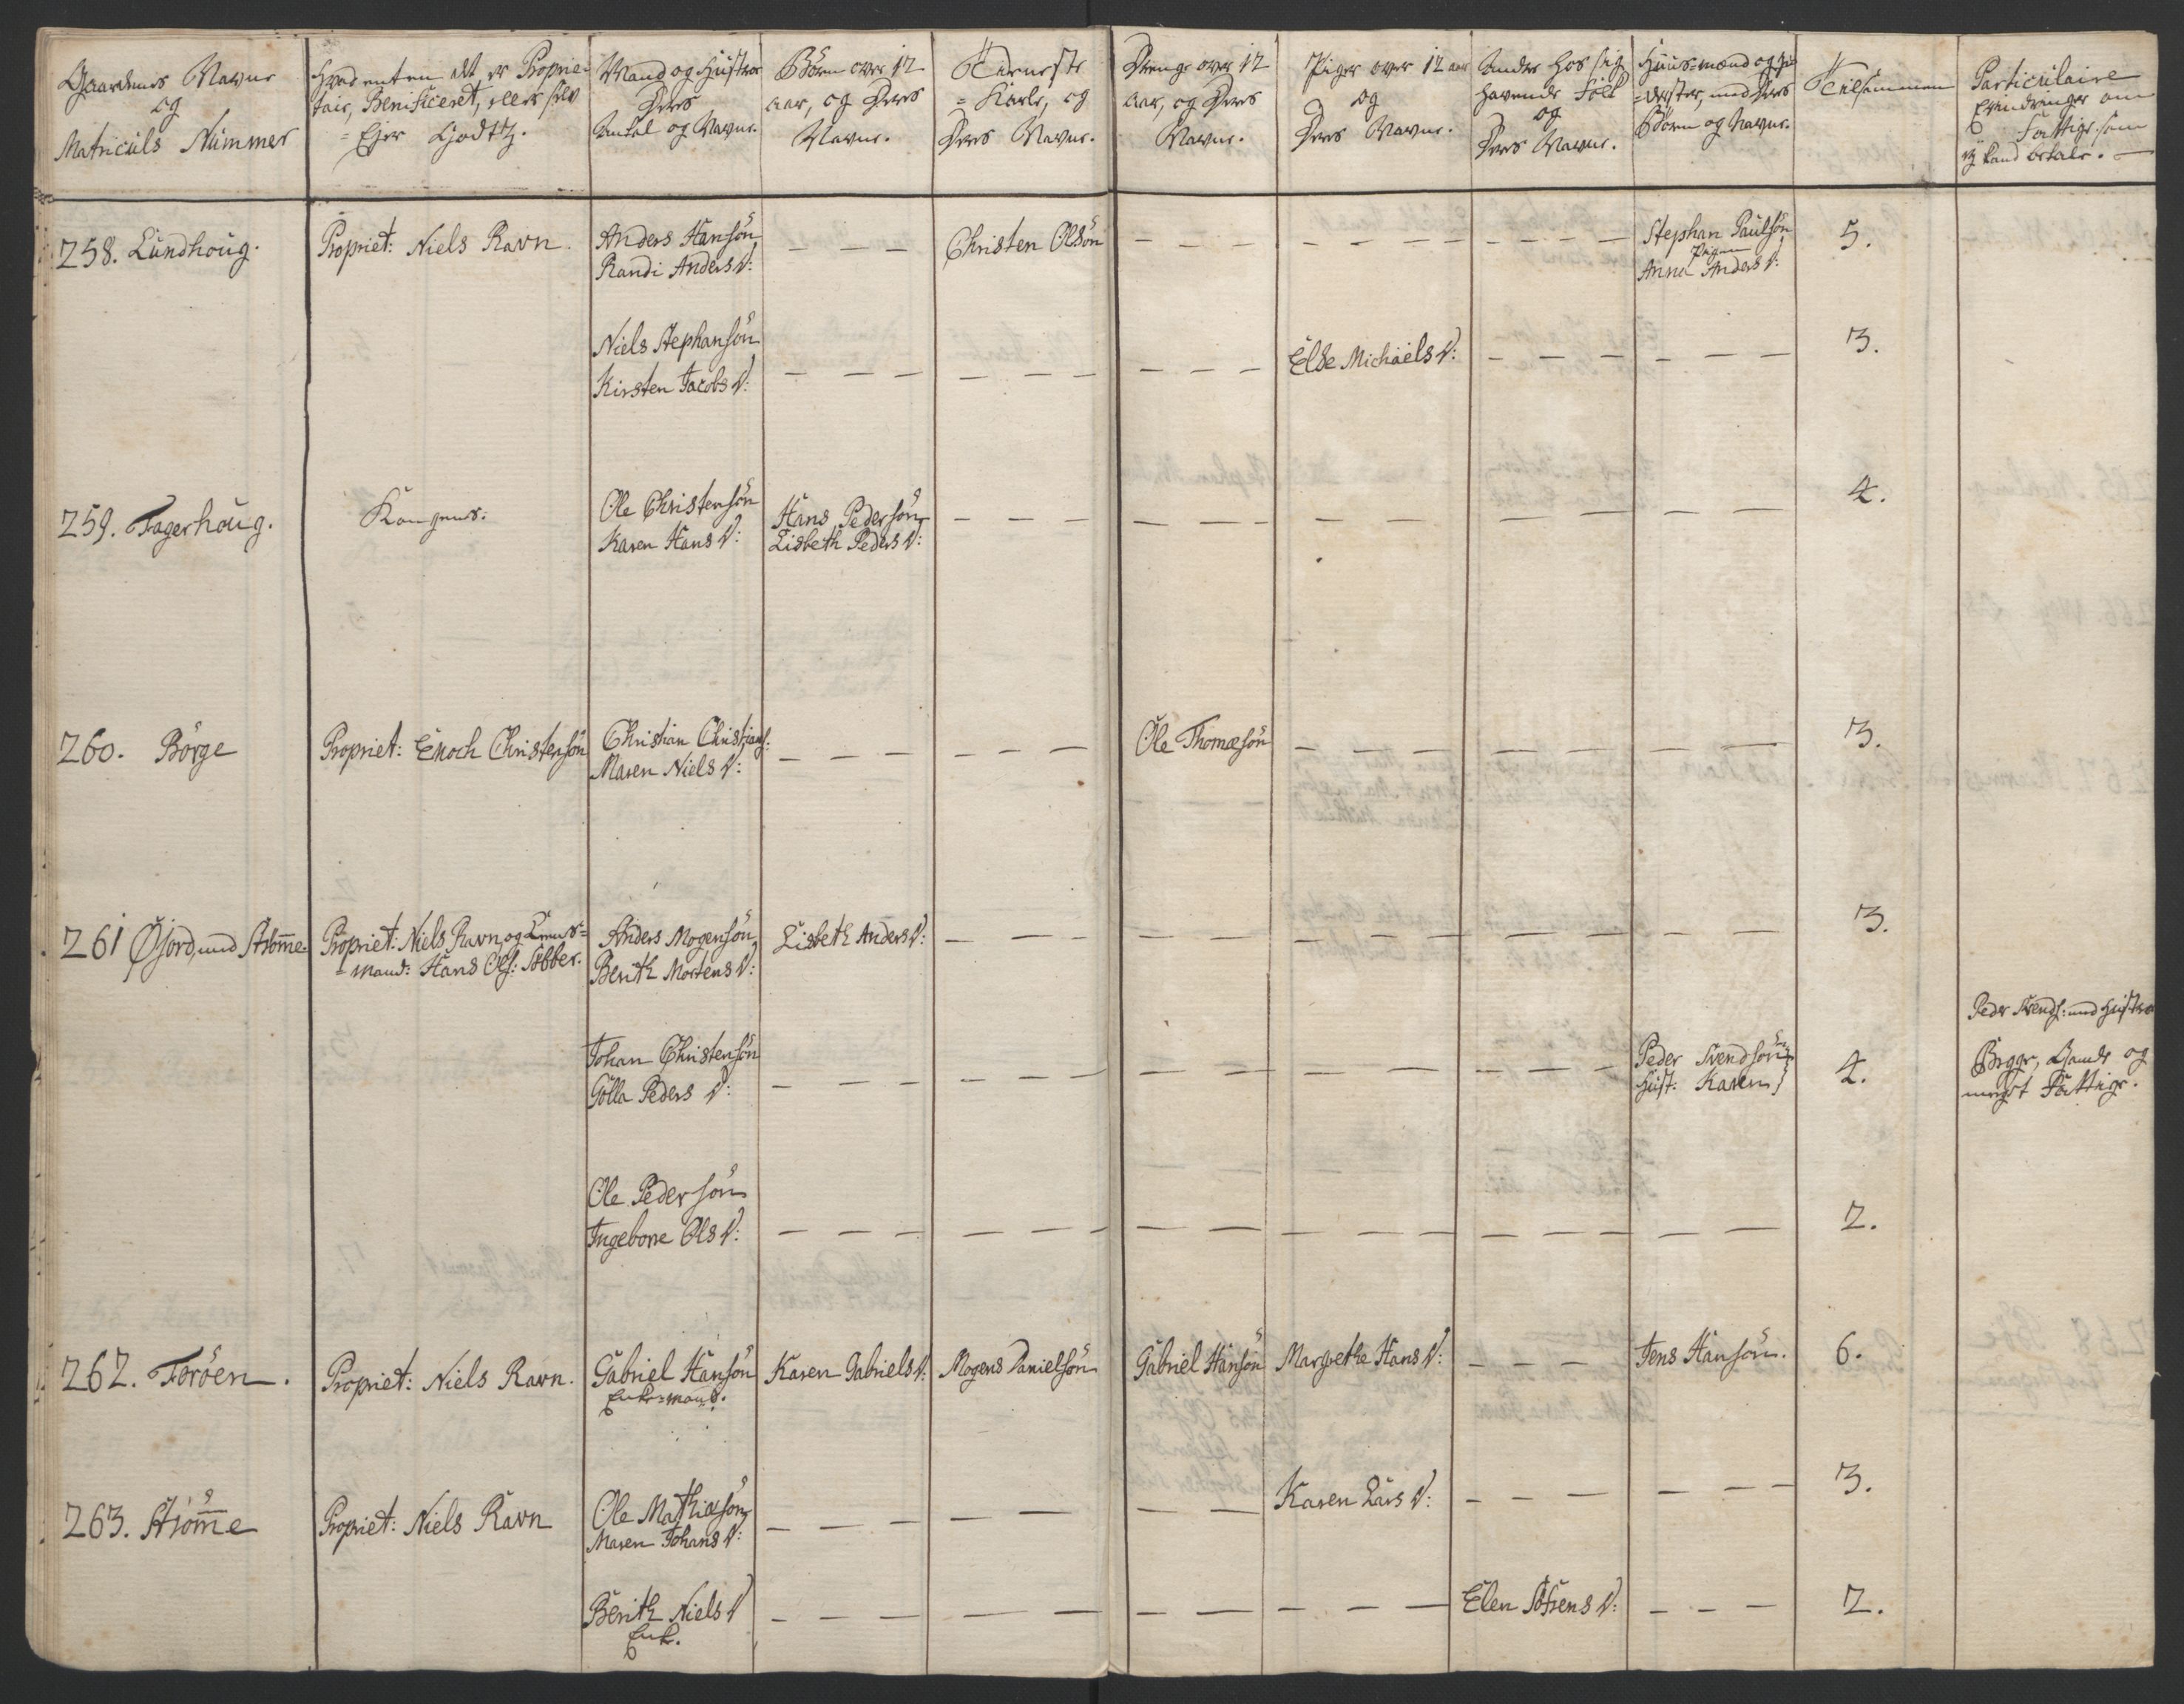 Gaardenes Navne
og
Matriculs Nummer
Hvad enten det er Proprie-
tair, Benificeret, eller selv
=Ejer Godtz.
Mand og Hustroe
Deres
Antal og Navne.
Børn over 12
aar, og Deres
Navne.
Tieneste
=Karle, og
Deres Navne.
Drenge over 12
aar, og Deres
Navne.
Piger over 12 aar
og
Deres Navne.
Andre hos sig
havende Folk
og
Deres Navne.
Huus=mænd og
Børn og Navne.
Tilsammen
Particulaire
Erindringer om
Fattige som
ej kand betale.
258. Lundhoug.
Propriet: Niels Ravn.
Anders Hansön
Randi Anders D:
Christen Olsön
Stephan Paulsön
Pigen
Anne Anders D:
5.
Niels Stephansön
Kirsten Jacobs D:
Else Michaels D:
3.
259. Fagerhoug.
Kongens.
Ole Christensön
Karen Hans D:
Hans Pedersön
Lisbeth Peders D:
4.
260. Börge
Propriet: Enoch Christensön
Christian Christians:
Maren Niels D:
Ole Thomæsön
3.
261 Øjord, med Strömme.
Propriet: Niels Ravn, og Lens=
=mand: Hans Ols: Röbber.
Anders Mogensön
Berith Mortens D:
Lisbeth Anders D:
3.
Johan Christensön
Golla Peders D:
Peder Svendsön
Hust: Karen
4.
Peder Svends: med Hustroe
Begge, Gamle og
meget Fattige.
Ole Pedersön
Ingebore Ols D:
2.
262. Toröen.
Propriet: Niels Ravn.
Gabriel Hansön
Enke=mand.
Karen Gabriels D:
Mogens Danielsön
Gabriel Hansön
Margrethe Hans D:
Jens Hansön.
6.
263. Strömme
Propriet: Niels Ravn
Ole Mathiæsön
Maren Johans D:
Karen Lars D:
3.
Berith Niels D
Enke.
Elen Söfrens D:
2.